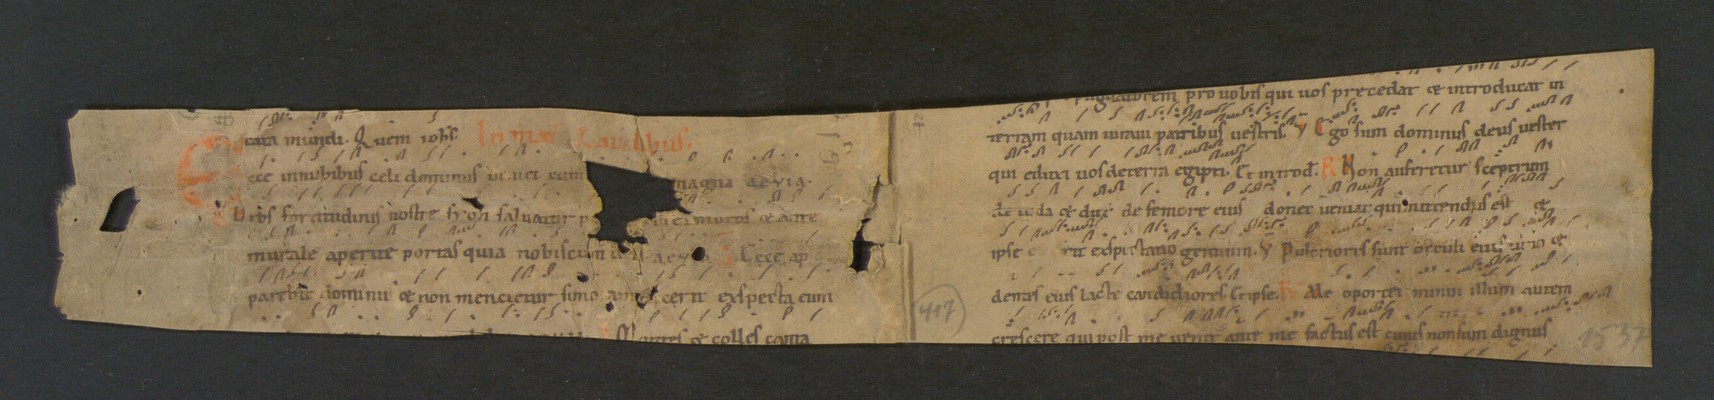 cata mundi. Quem iohs. In mat Laudibus.
Ecce innubibus celi dominus ueniet cum magna aeuia.
Urbs fortitudinis nostre syon saluator murus et ante
murale aperite portas quia nobiscum aeuia Ecce ap
parebit dominus et non mencietur simo cerit exspecta eum
Montes et colles canta
pugnatorem pro uobis qui uos precedat et introducat in
terram quam iuraui patribus uestris. V Ego sum dominus deus uester
qui eduxi uos deterra egipti. Et introd. R Non auferetur sceptrum
de iuda et dux de femore eius donec ueniat qui mittendus est et
ipse exspectatio gentium. V Pulcriores sunt occuli eius uino et
dentes eius lacte candidiores Et ipse. R Me oportet minui illum autem
crescere qui post me uenit ante me factus est cuius non sum dignus
417
1537